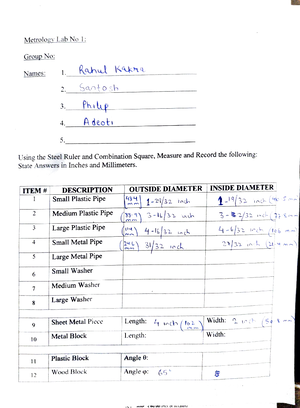 Metrology Lab No 1:
Group No:
Names: 1. Rahul Kakma
2. Santosh
3. Philip
4. Adeoti
5.
Using the Steel Ruler and Combination Square, Measure and Record the following:
State Answers in Inches and Millimeters.
ITEM # DESCRIPTION OUTSIDE DIAMETER INSIDE DIAMETER
1 Small Plastic Pipe 1-29/32 inch 1-19/32 inch
2 Medium Plastic Pipe 3-16/32 inch 3- 2/32 inch
3 Large Plastic Pipe 4-16/32 inch 4-6/32 inch
4 Small Metal Pipe 31/32 inch 28/32 inch
5 Large Metal Pipe
6 Small Washer
7 Medium Washer
8 Large Washer
9 Sheet Metal Piece Length: 4 inch (102) Width: 2 inch
10 Metal Block Length: Width:
11 Plastic Block Angle θ:
12 Wood Block Angle φ: 65°